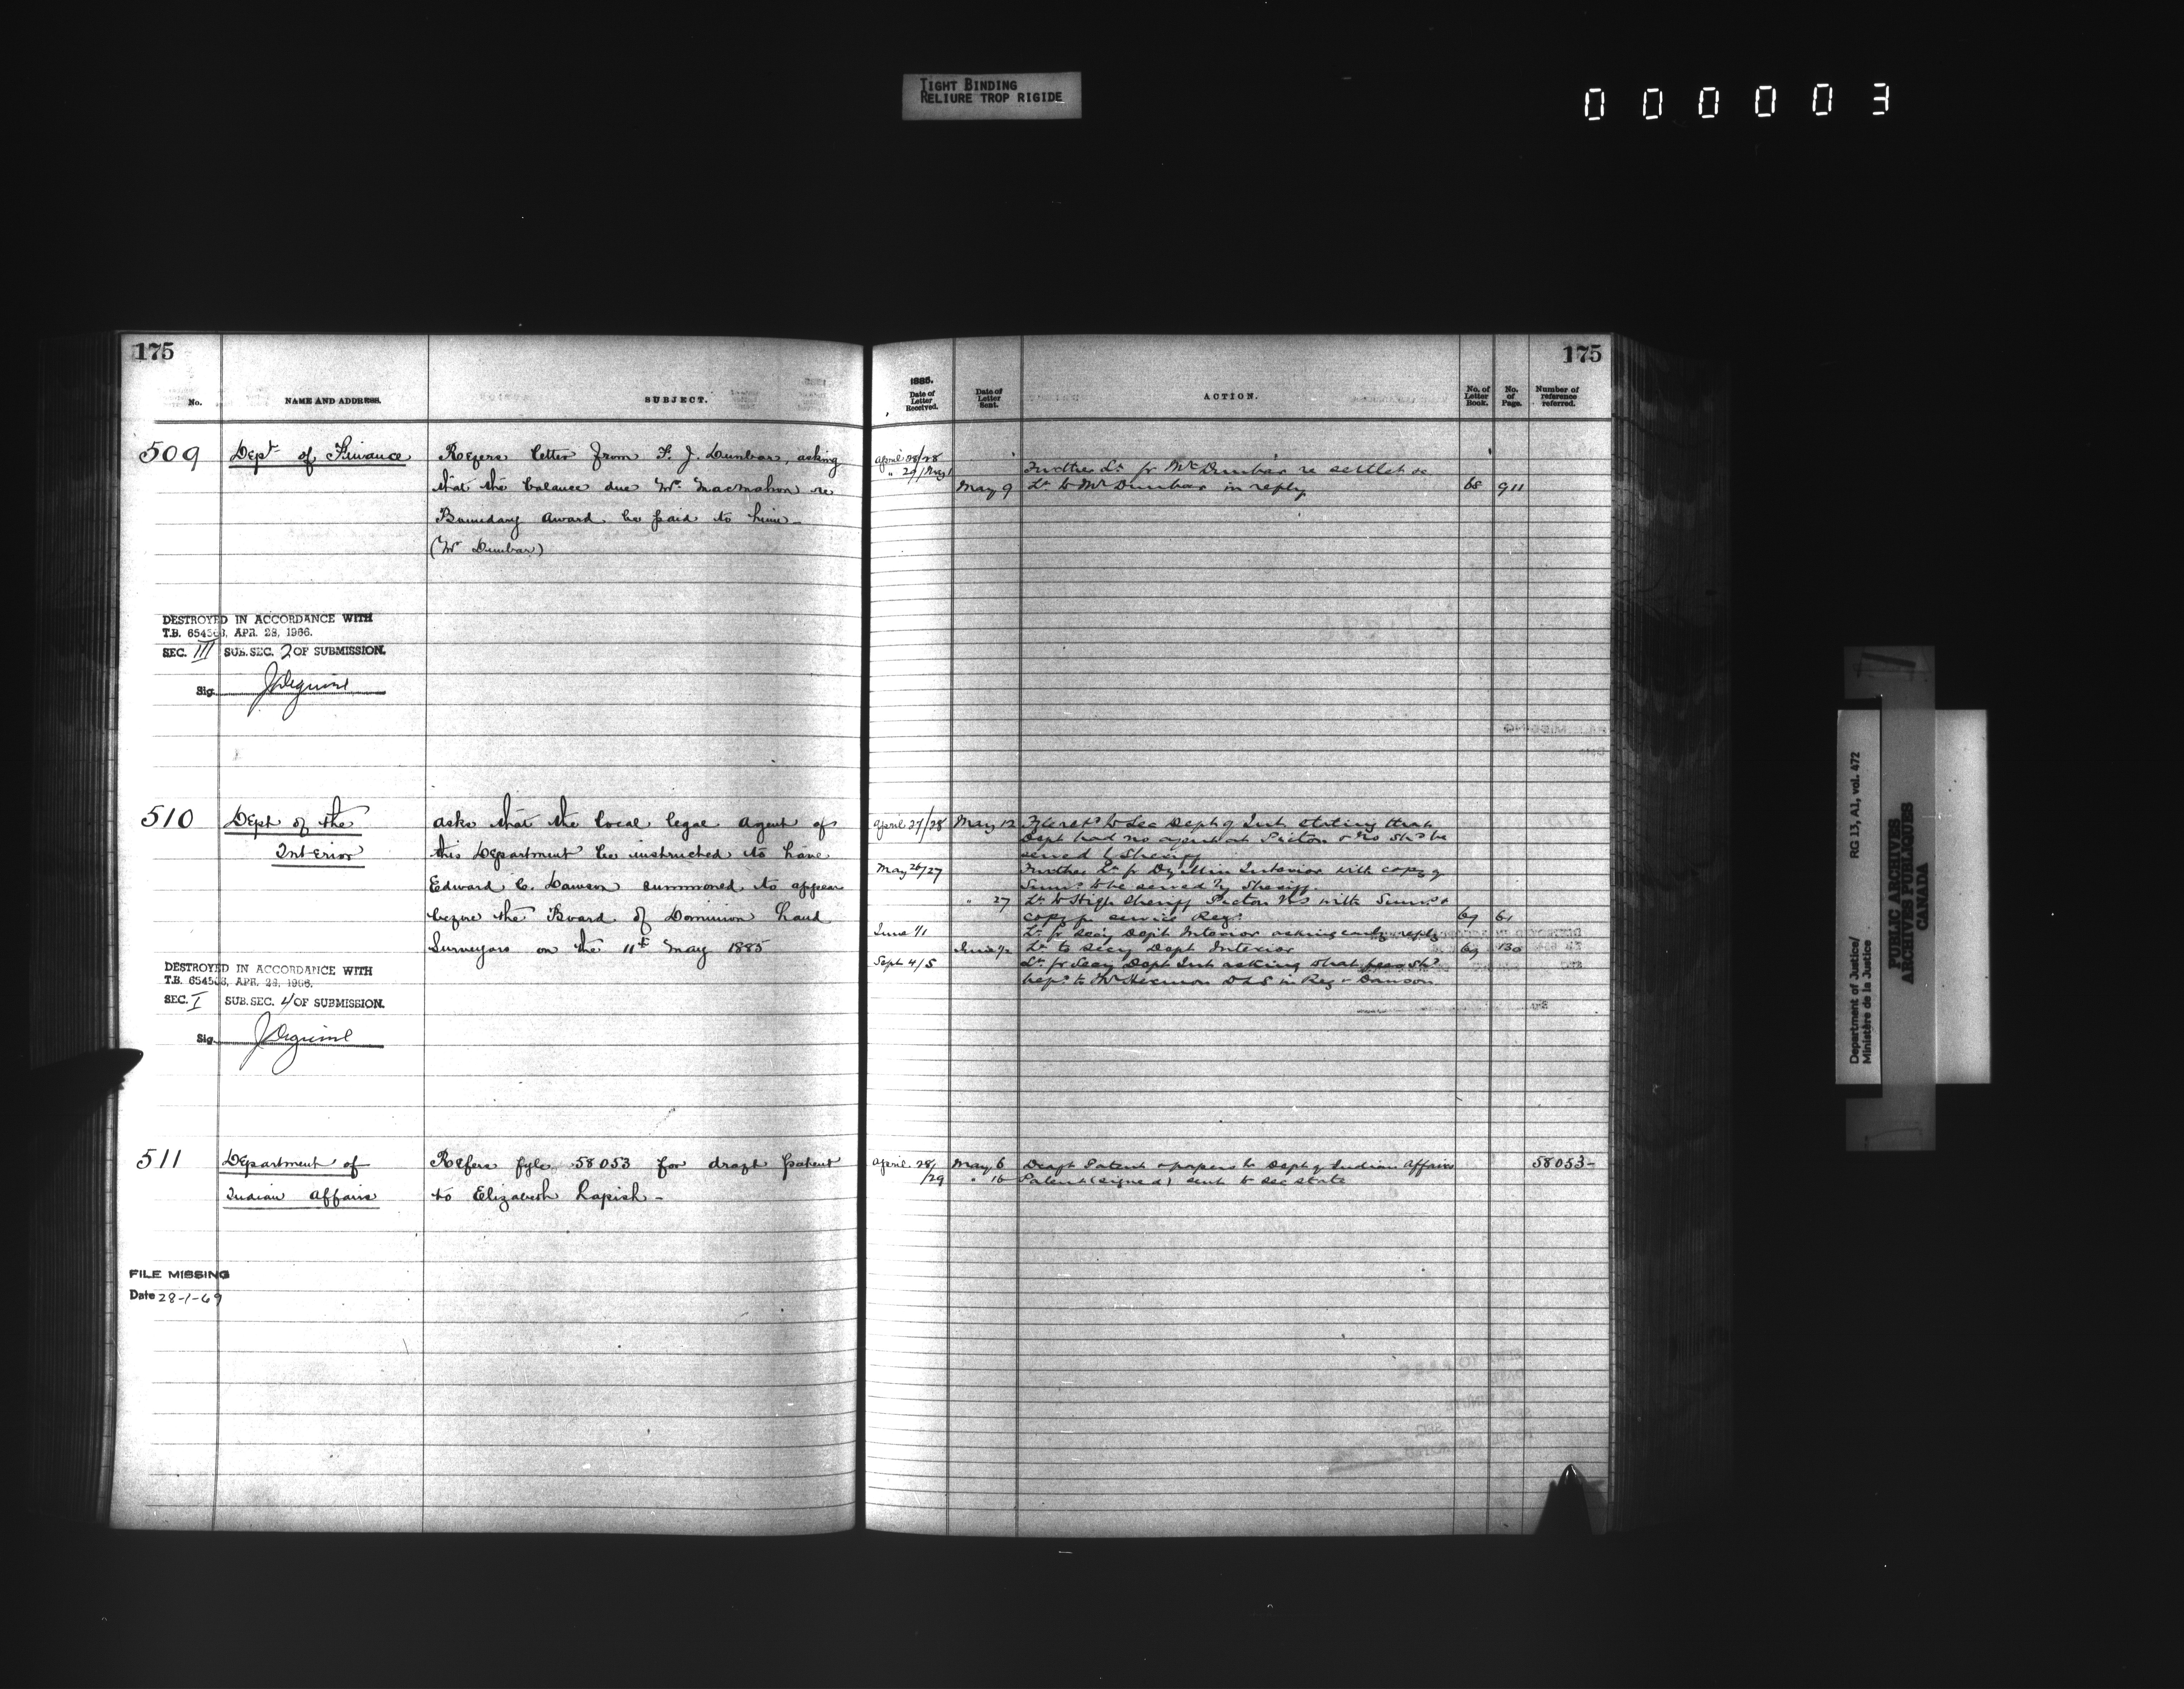 TIGHT BINDING
RELIURE TROP RIGIDE
000003
175
No.
NAME AND ADDRESS.
SUBJECT.
509
Dept of Finance
Refers letter from F. J. Dunbar, asking
that the balance due Mr. Macmahon re
Boundary Award be paid to him -
(Mr Dunbar)
DESTROYED IN ACCORDANCE WITH
T.B. APR. 28, 1966.
SEC. III SUB. SEC. 2 OF SUBMISSION.
Sig.
510
Dept of the
Interior
asks that the local legal agent of
this Department be instructed to have
Edward C. Dawson summoned to appear
before the Board of Dominion Land
Surveyors on the 11th May 1885
DESTROYED IN ACCORDANCE WITH
T.B. APR. 28, 1966.
SEC. I SUB. SEC. 4 OF SUBMISSION.
Sig.
511
Department of
Indian Affairs
Refers fyle 58053 for draft patent
to Elizabeth Lapish -
FILE MISSING
Date 28-1-69
175
1885.
Date of
Letter
Received.
Date of
Letter
Sent.
ACTION.
No. of
Letter
Book.
No.
of
Page.
Number of
reference
referred.
April 28/28
" 29/May 1 Further Lr fr Mr Dunbar re
May 9 Lr to Mr Dunbar in reply 68 911
April 27/28 May 12 to Sec Dept of Int stating that
Dept had no agent at Pictou & shd be
served by Sheriff
May 26/27 Further Lr fr Dy Min Interior with copy of
Sums to be served by Sheriff.
" 27 Lr to High Sheriff Pictou NS with Sums &
copy for service 69 61
June 1/1 Lr fr Secy Dept Interior asking early reply
June Lr to Secy Dept Interior 69 130
Sept 4/5 Lr fr Secy Dept Int asking what fees shd
be pd to Mr DLS in Reg v Dawson.
April 28/29 May 6 Draft Patent & papers to Dept of Indian Affairs 58053-
" 16 Patent (signed) sent to Sec State
Department of Justice/
Ministère de la Justice
RG 13, A1, vol. 472
PUBLIC ARCHIVES
ARCHIVES PUBLIQUES
CANADA